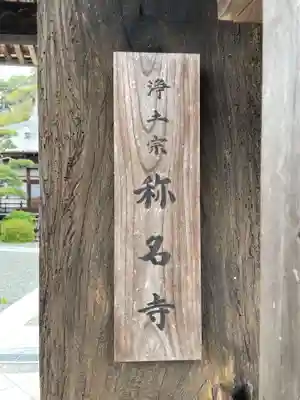 浄土宗称名寺